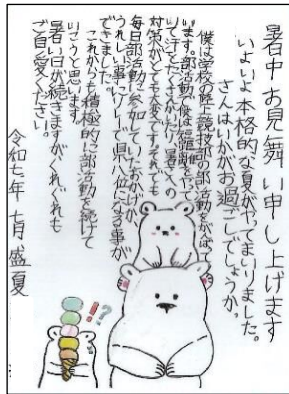 暑中お見舞い申し上げます
いよいよ本格的な夏がやってまいりました。
さんはいかがお過ごしでしょうか。
僕は学校の陸上競技部の部活動をがんばって
います。部活動では短距離をやって
いて汗をたくさんかいて暑さへの
対策がとても大変です。それでも
毎日部活動に参加していたおかげか、
うれしい事にリレーで県八位になる事が
できました。
これからも積極的に部活動を続けて
いこうと思います。
暑い日が続きますがくれぐれも
ご自愛ください。
令和七年 七月 盛夏
!!?